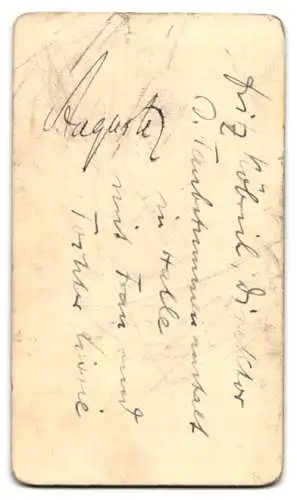 Auguste
Fritz Köbrich, Direktor
d. Taubstummenanstalt
in Halle
mit Frau und
Tochter